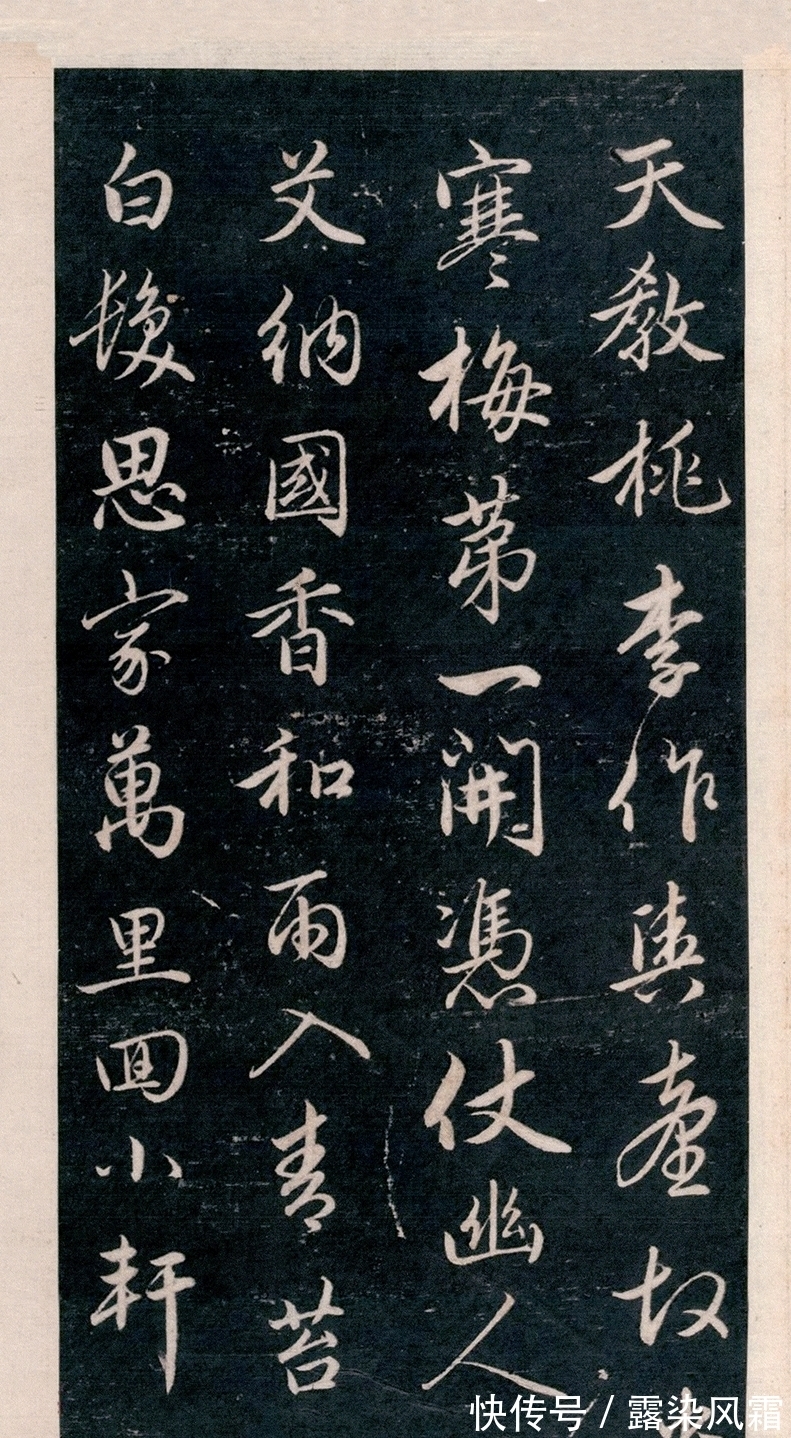 天教桃李作輿臺故
寒梅第一開憑仗幽人
艾納國香和雨入青苔
白髮思家萬里回小軒
快传号 / 露染风霜